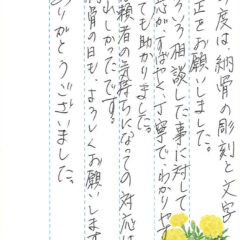 度は、納骨の彫刻と文字
正をお願いしました。
ろいろ相談した事に対して
応がすばやく、丁寧で、わかりやす
ても助かりました。
頼者の気持ちになっての対応は
れしかったです。
納骨の日も、よろしくお願いします
ありがとうございました。